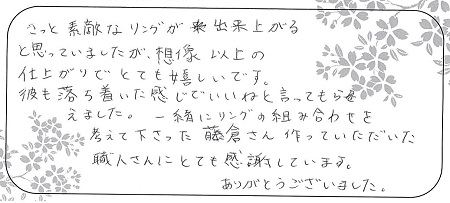 きっと素敵なリングが出来上がる
と思っていましたが、想像以上の
仕上がりでとても嬉しいです。
彼も落ち着いた感じでいいねと言ってもら
えました。一緒にリングの組み合わせを
考えて下さった藤倉さん作っていただいた
職人さんにとても感謝しています。
ありがとうございました。